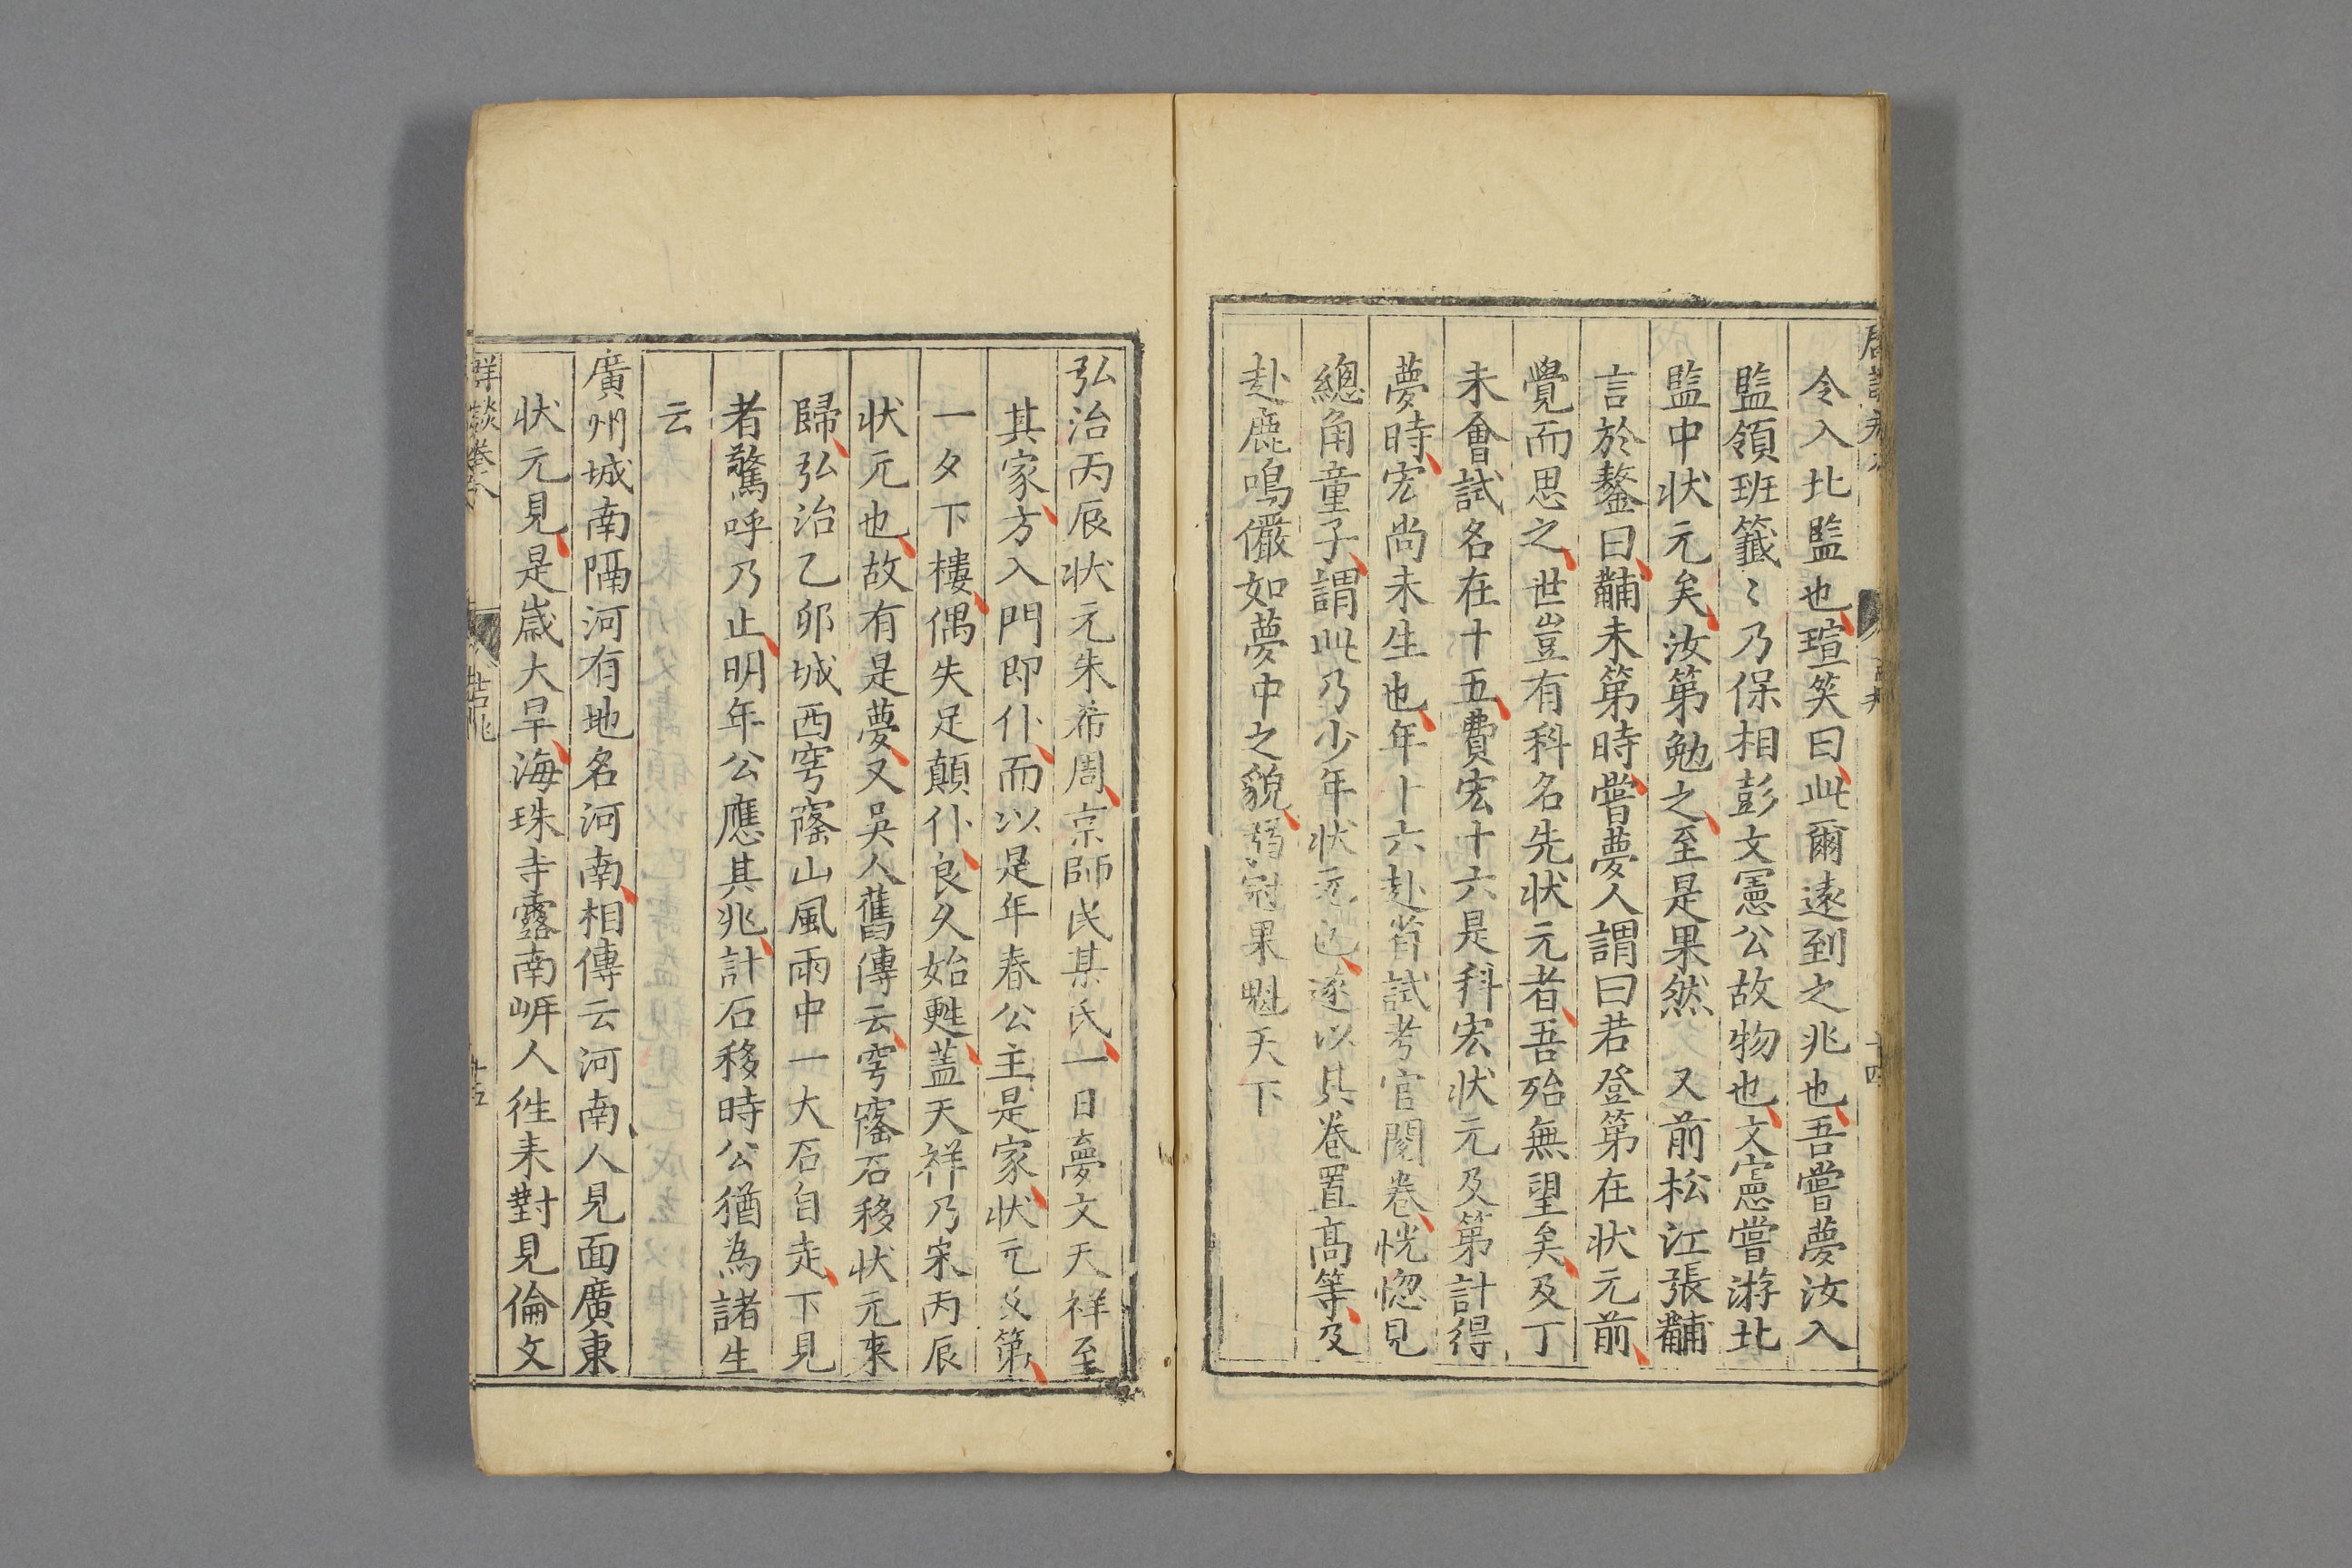 令入北監也瑄笑曰此爾遠到之兆也吾嘗夢汝入
監領班籤〻乃保相彭文憲公故物也文憲嘗游北
監中状元矣汝第勉之至是果然 又前松江張黼
言於鏊曰黼未第時嘗夢人謂曰若登第在状元前
覺而思之世豈有科名先状元者吾殆無望矣及丁
未會試名在十五費宏十六是科宏状元及第計得
夢時宏尚未生也年十六赴省試考官閱卷恍惚見
總角童子謂此乃少年状元也遂以其卷置高等及
赴鹿鳴儼如夢中之貌弱冠果魁天下
弘治丙辰状元朱希周京師民某氏一日夢文天祥至
其家方入門即仆而以是年春公主是家状元及第
一夕下樓偶失足顛仆良久始甦蓋天祥乃宋丙辰
状元也故有是夢又吳人舊傳云穹窿石移状元来
歸弘治乙卯城西穹窿山風雨中一大石自走下見
者驚呼乃止明年公應其兆計石移時公猶為諸生
云
廣州城南隔河有地名河南相傳云河南人見面廣東
状元見是歳大旱海珠寺露南岍人徃来對見倫文
群談卷八